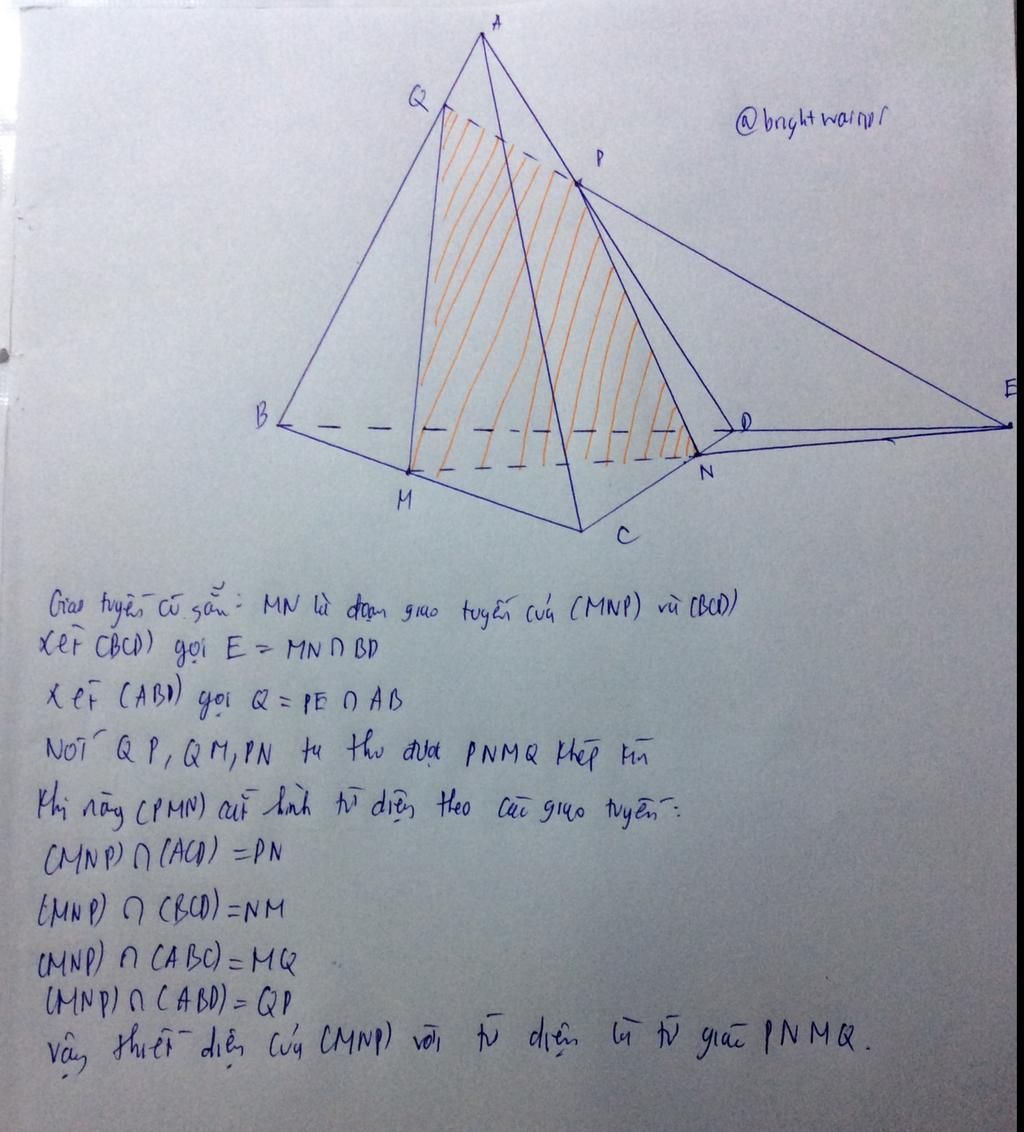 A
Q
@brightwarior
P
E
B
D
N
M
C
Giao tuyến có sẵn: MN là đoạn giao tuyến của (MNP) và (BCD)
Xét (BCD) gọi E = MN ∩ BD
Xét (ABD) gọi Q = PE ∩ AB
NỐI QP, QM, PN ta thu được PNMQ khép kín
Khi này (PMN) cắt hình tứ diện theo các giao tuyến:
(MNP) ∩ (ACD) = PN
(MNP) ∩ (BCD) = NM
(MNP) ∩ (ABC) = MQ
(MNP) ∩ (ABD) = QP
Vậy thiết diện của (MNP) với tứ diện là tứ giác PNMQ.